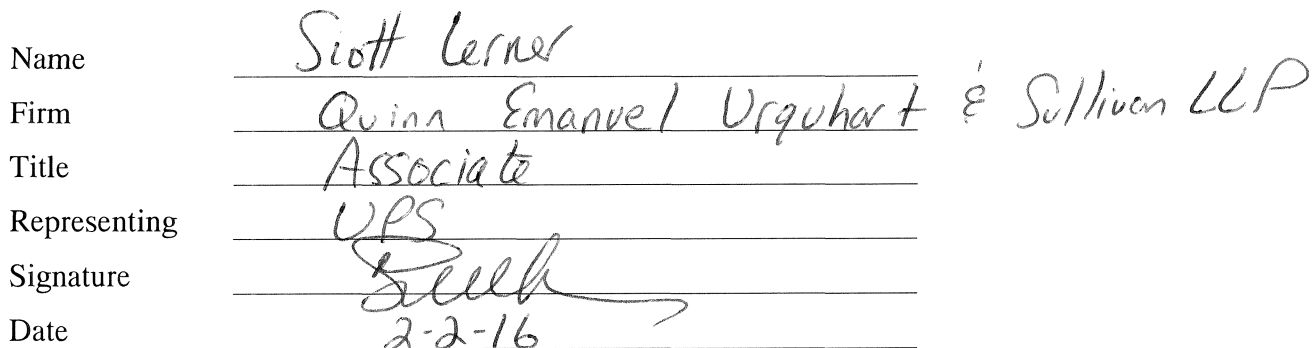 Name Scott Lerner
Firm Quinn Emanuel Urquhart & Sullivan LLP
Title Associate
Representing UPS
Signature
Date 2-2-16